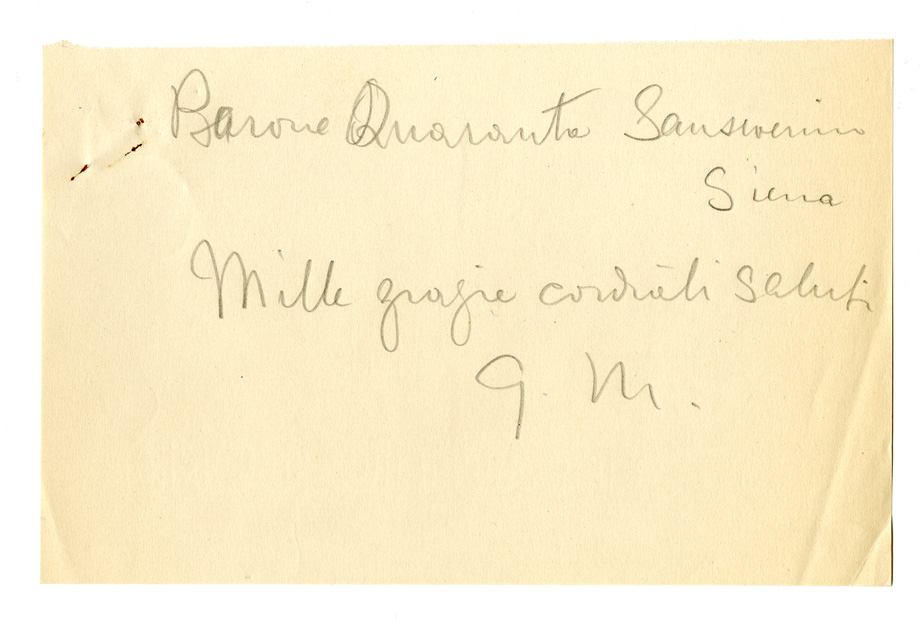 Barone Quaranta Sanseverino
Siena
Mille grazie cordiali saluti
G. M.